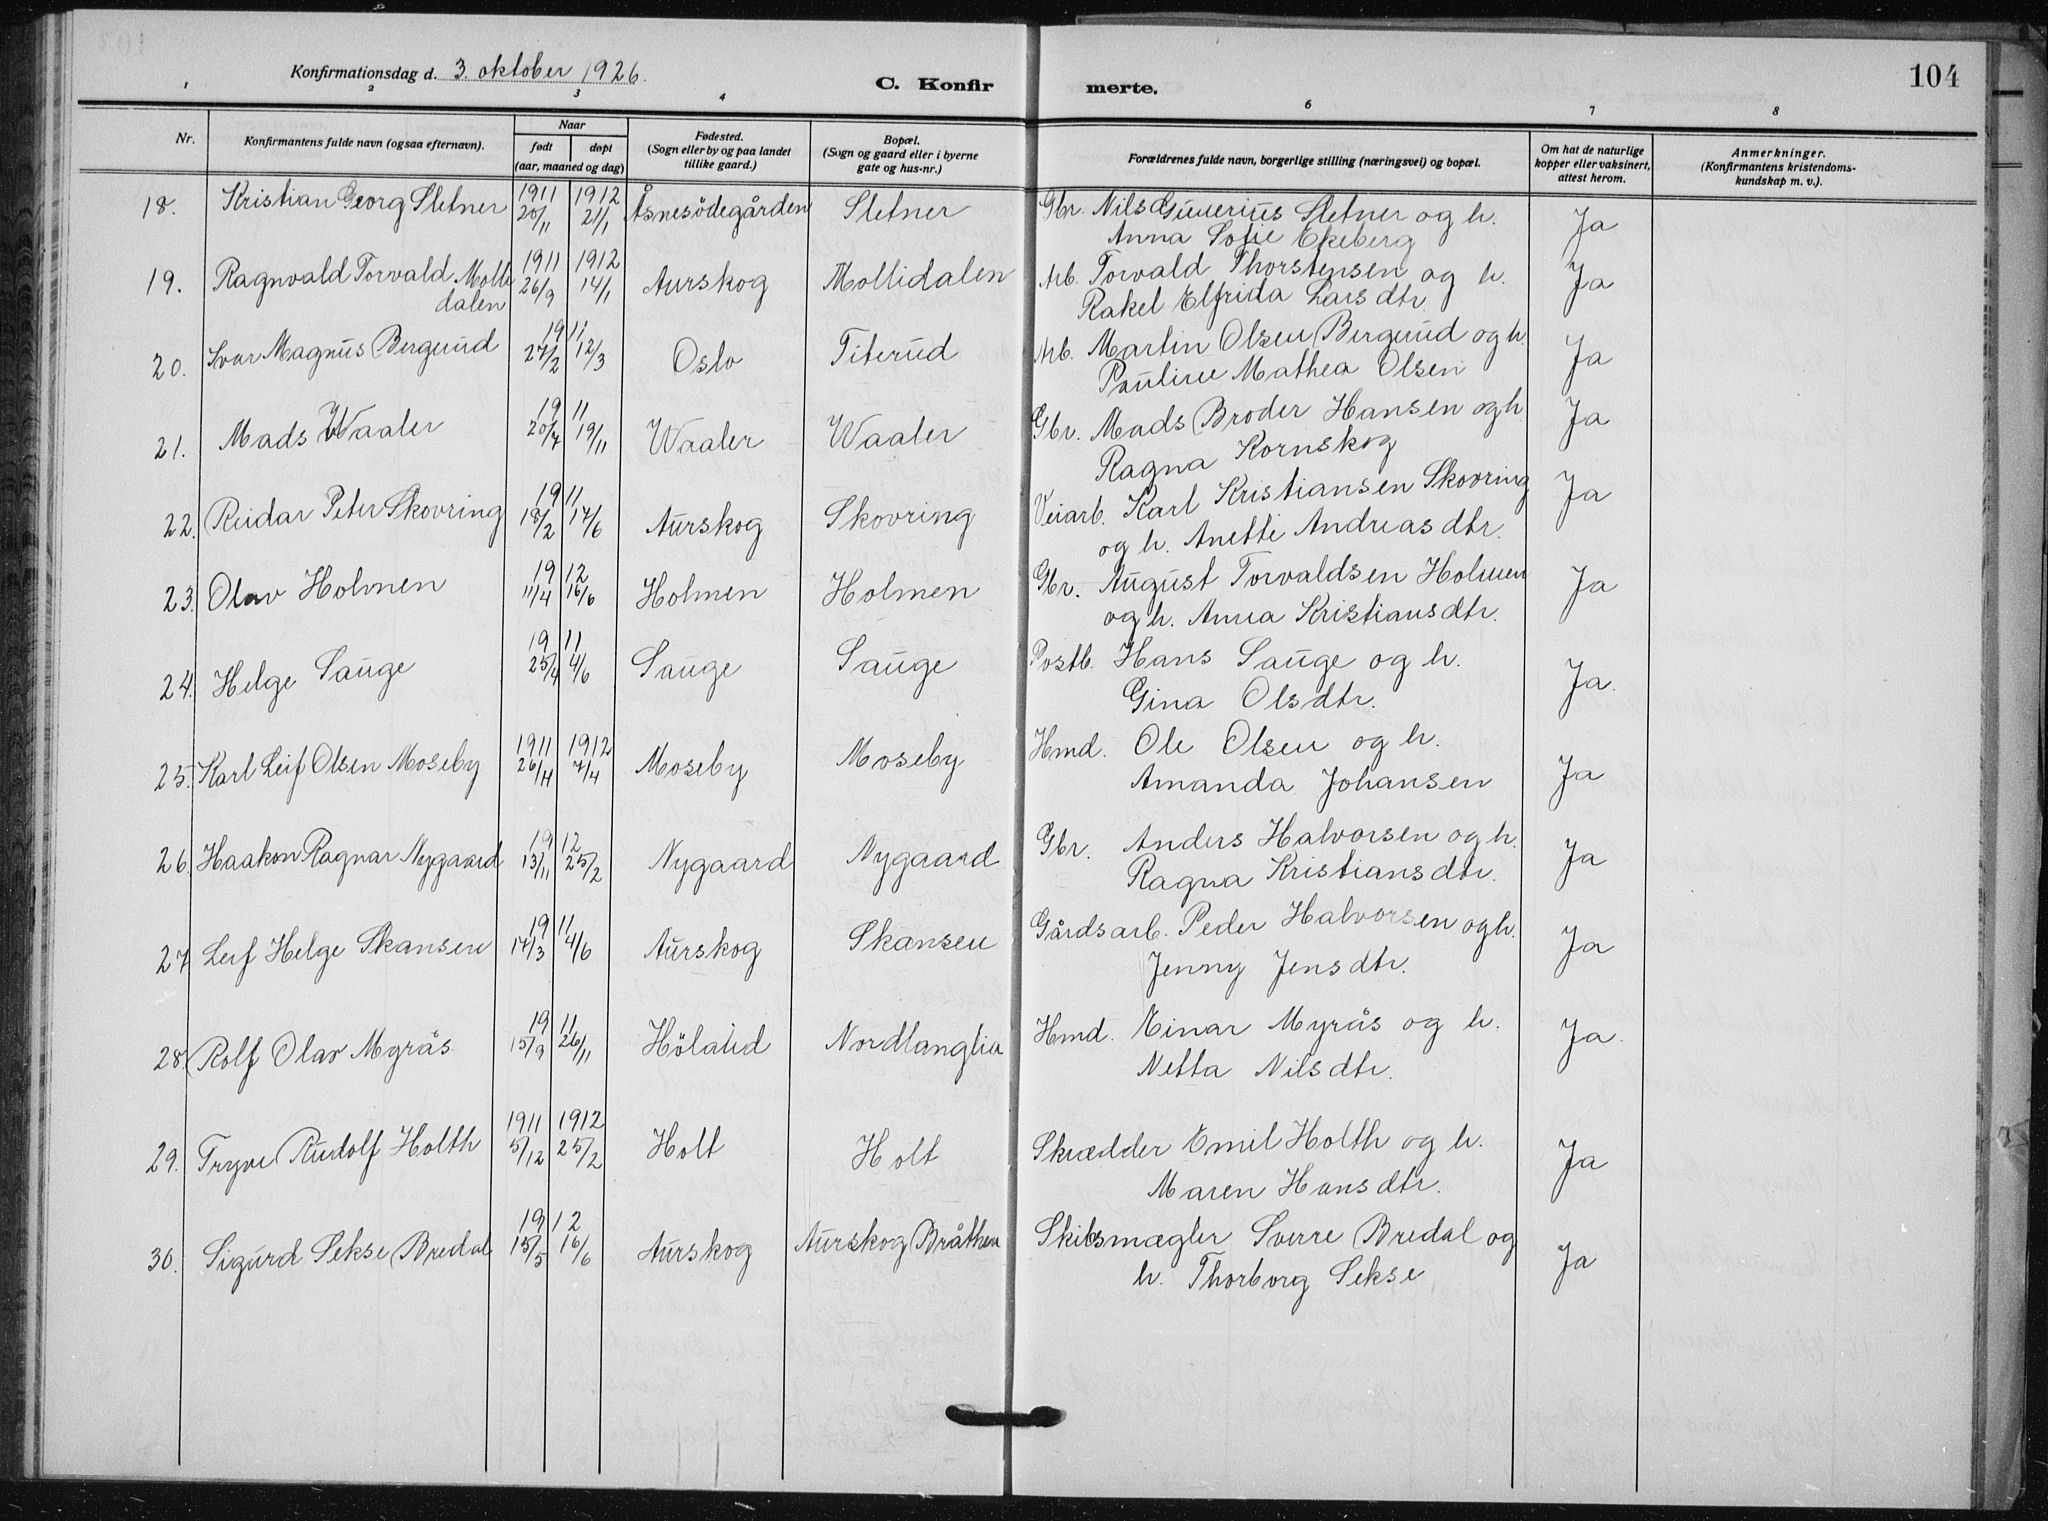 Konfirmationsdag d. 3. oktober 1926.
C. Konfirmerte.
104
1 2 3 4 6 7 8
Nr.
Konfirmantens fulde navn (ogsaa efternavn).
Naar
født døpt
(aar, maaned og dag)
Fødested.
(Sogn eller by og paa landet
tillike gaard.)
Bopæl.
(Sogn og gaard eller i byerne
gate og hus-nr.)
Forældrenes fulde navn, borgerlige stilling (næringsvei) og bopæl.
Om hat de naturlige
kopper eller vaksinert,
attest herom.
Anmerkninger.
(Konfirmantens kristendoms-
kundskap m. v.).
18. Kristian Georg Sletner 1911 20/11 1912 21/1 Åsnesödegården Sletner Gbr. Nils Guverius Sletner og h. Ja
Anna Sofie Ekeberg
19. Ragnvald Torvald Molli 1911 26/9 1912 14/1 Aurskog Mollidalen Arb. Torvald Thorstensen og h. Ja
dalen Rakel Elfrida Larsdtr.
20. Ivar Magnus Bergerud 1911 27/2 12/3 Oslo Titerud Arb. Martin Olsen Bergerud og h. Ja
Pauline Mathea Olsen
21. Mads Waaler 1911 20/7 19/11 Waaler Waaler Gbr. Mads Broder Hansen og h. Ja
Ragna Kornskog
22. Reidar Peter Skovring 1911 18/2 17/6 Aurskog Skovring Veiarb. Karl Kristiansen Skovring Ja
og h. Anette Andreasdtr.
23. Olav Holmen 1912 11/4 16/6 Holmen Holmen Gbr. August Torvaldsen Holmen Ja
og h. Anna Kristiansdtr.
24. Helge Sauge 1911 25/4 4/6 Sauge Sauge Postb. Hans Sauge og h. Ja.
Gina Olsdtr.
25. Karl Leif Olsen Moseby 1911 26/11 1912 7/4 Moseby Moseby Hmd. Ole Olsen og h. Ja
Amanda Johansen
26. Haakon Ragnar Nygaard 1912 13/11 25/2 Nygaard Nygaard Gbr. Anders Halvorsen og h. Ja
Ragna Kristiansdtr.
27 Leif Helge Skansen 1911 17/3 4/6 Aurskog Skansen Gårdsarb. Peder Halvorsen og h. Ja
Jenny Jensdtr.
28. Rolf Olav Myrås 1911 15/9 26/11 Hölalid Nordlanglia Hmd. Einar Myrås og h. Ja.
Netta Nilsdtr.
29. Tryve Rudolf Holth 1911 5/12 1912 25/2 Holt Holt Skrædder Emil Holth og h. Ja
Maren Hansdtr.
30. Sigurd Sekse Bredal 1912 15/5 16/6 Aurskog Aurskog Bråthen Skibsmægler Sverre Bredal og Ja
h. Thorborg Sekse